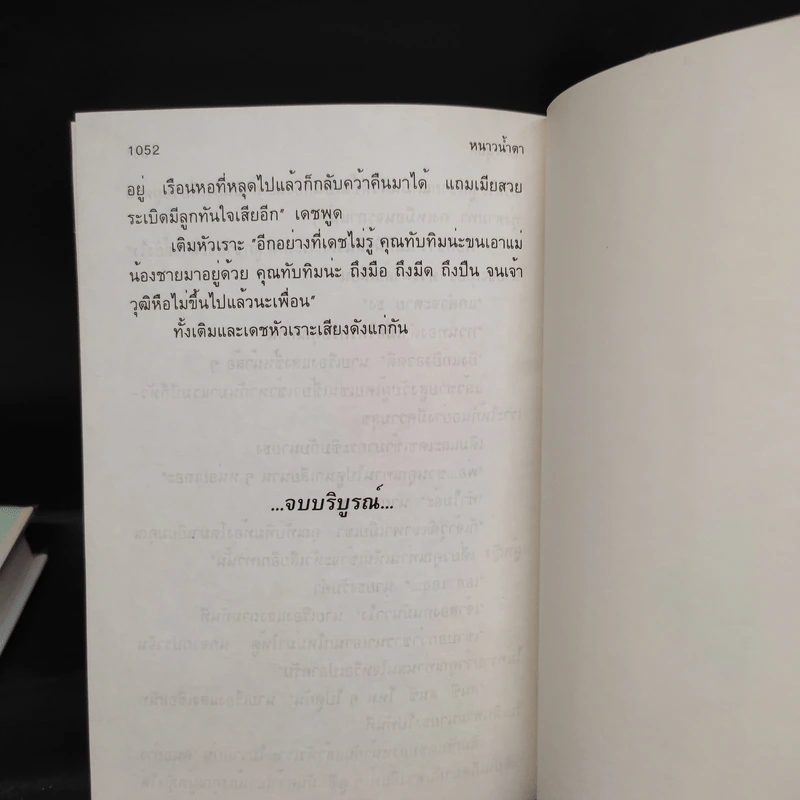 1052 หนาวน้ำตา
อยู่ เรือนหอที่หลุดไปแล้วก็กลับคว้าคืนมาได้ แถมเมียสวย
ระเบิดมีลูกทันใจเสียอีก" เดชพูด
เติมหัวเราะ "อีกอย่างที่เดชไม่รู้ คุณทับทิมน่ะขนเอาแม่
น้องชายมาอยู่ด้วย คุณทับทิมน่ะ ถึงมือ ถึงมีด ถึงปืน จนเจ้า
วุฒิหือไม่ขึ้นไปแล้วนะเพื่อน"
ทั้งเติมและเดชหัวเราะเสียงดังแก่กัน
...จบบริบูรณ์...